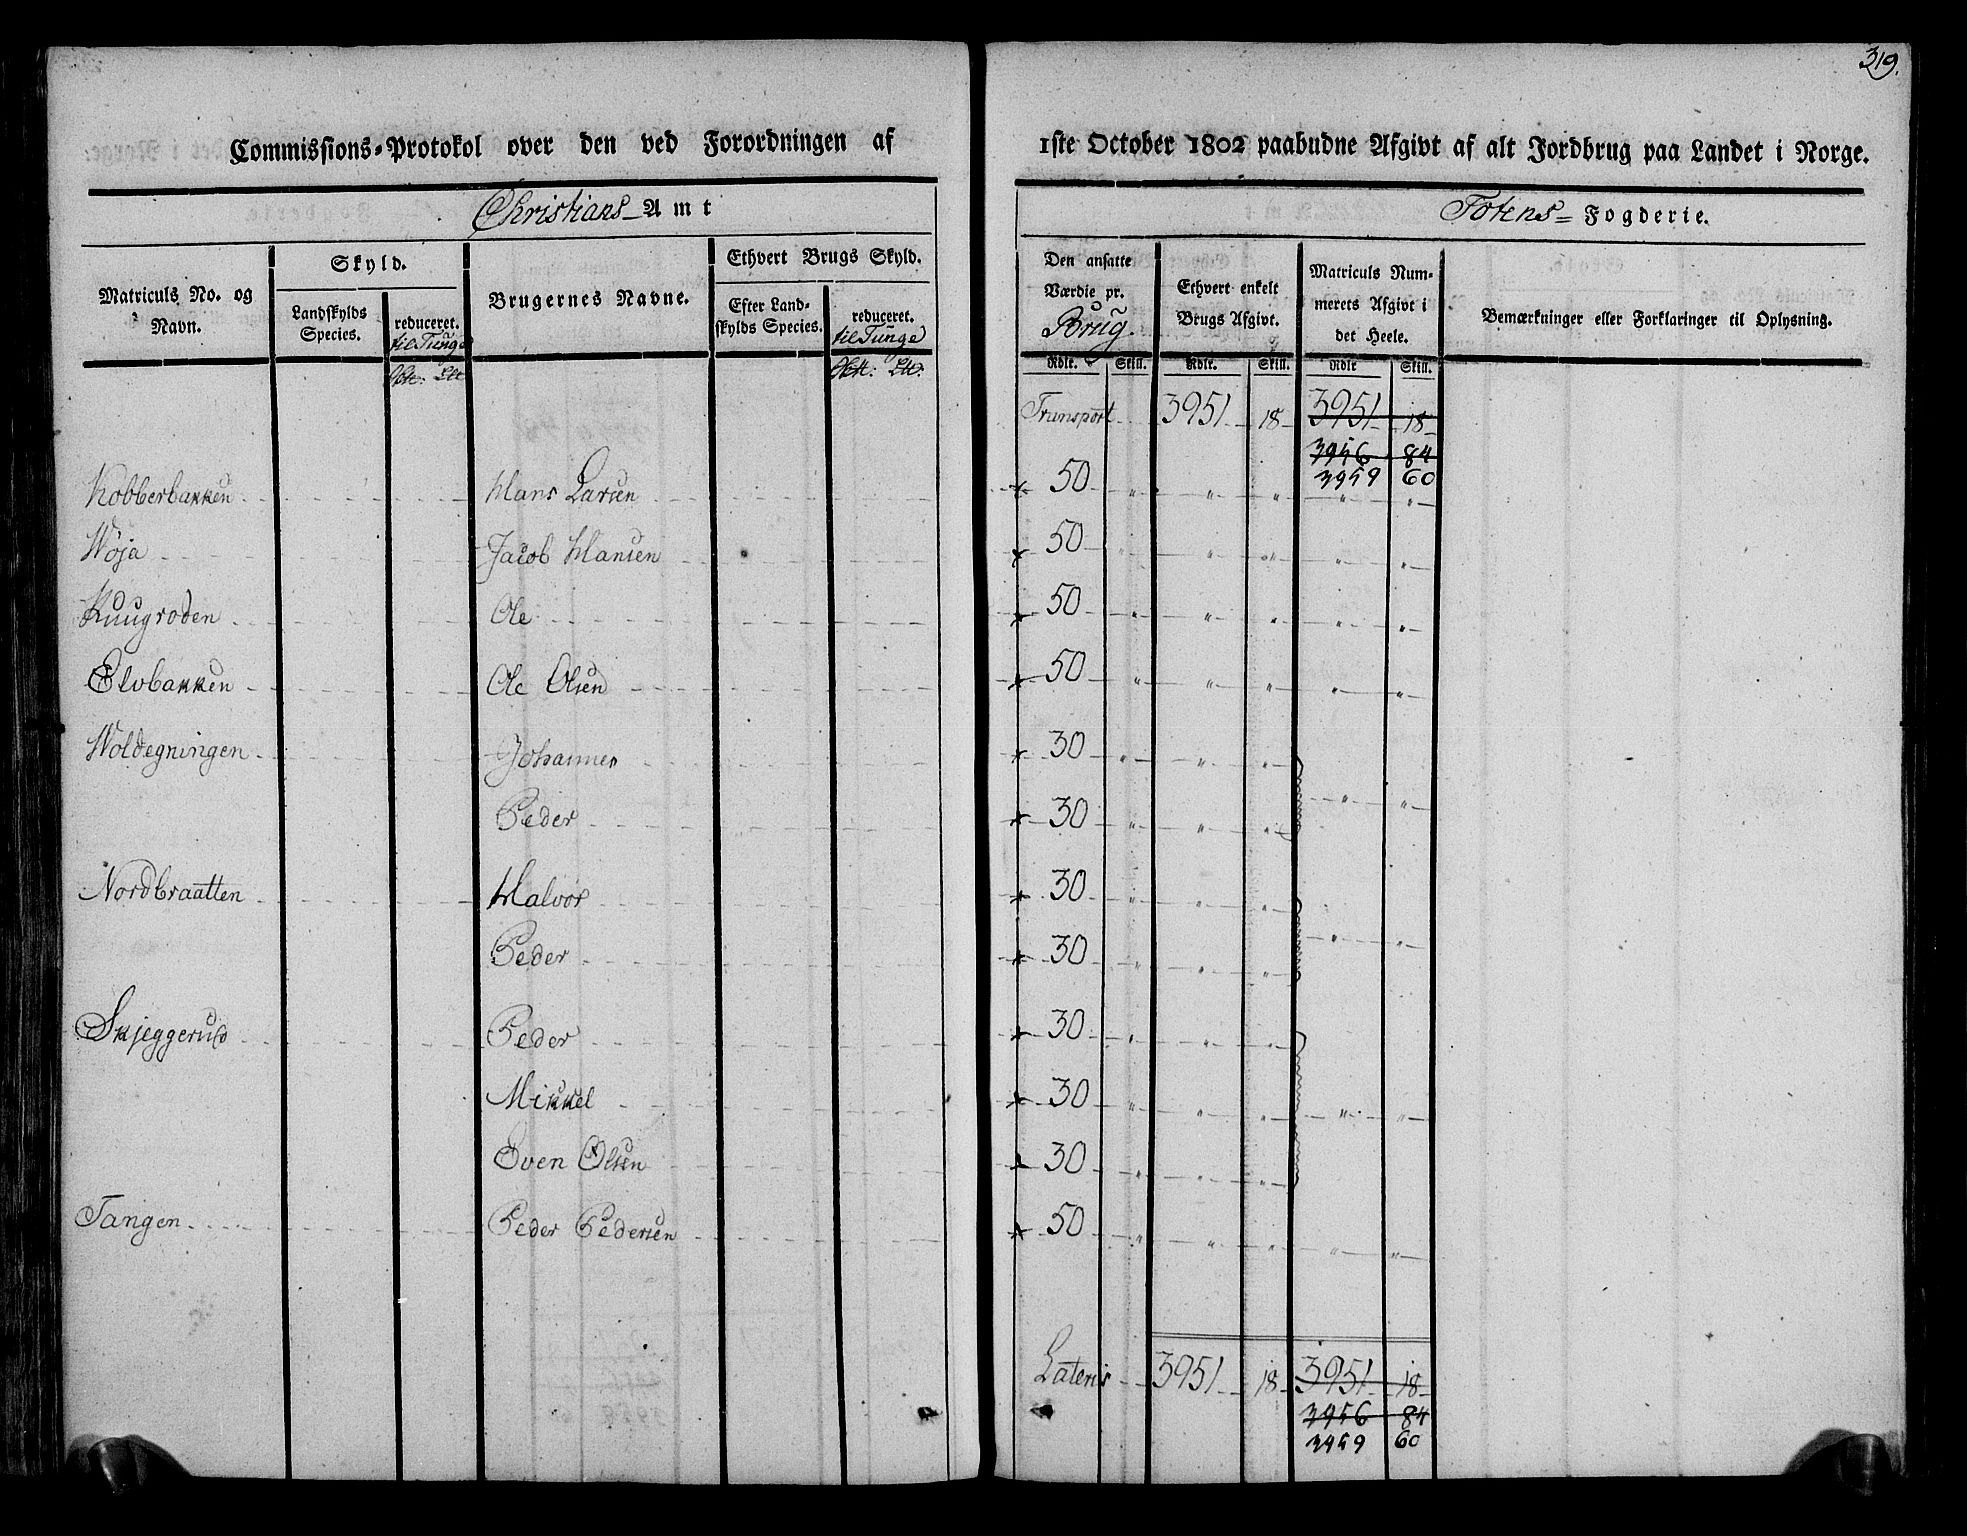 319.
Commissions-Protokol over den ved Forordningen af 1ste October 1802 paabudne Afgivt af alt Jordbrug paa Landet i Norge.
Christians Amt Totens Fogderie.
Matriculs No. og Navn.
Skyld.
Landskylds Species.
reduceret. til Tunge
Brugernes Navne.
Ethvert Brugs Skyld.
Efter Landskylds Species.
reduceret. til Tunge
Den ansatte Værdie pr. Brug.
Ethvert enkelt Brugs Afgivt.
Matriculs Nummerets Afgivt i det Heele.
Bemærkninger eller Forklaringer til Oplysning.
Rdlr. Skill. Rdlr. Skill. Rdlr Skill.
Transport 3951 18 3951 18
3956 84
3959 60
Kobberbakken Hans Larsen 50 " " " " "
Wøja Jacob Hansen 50 " " " " "
Ole 50 " " " " "
Elvbakken Ole Olsen 50 " " " " "
Woldegningen Johannes 30 " " "
Peder 30 " " " " "
Nordbraatten Halvor 30 " " "
Peder 30 " " " " "
Skjeggerud Peder 30 " " "
Mikkel 30 " " " " "
Even Olsen 30 " " "
Tangen Peder Pedersen 50 " " " " "
Lateris 3951 18 3951 18
3956 84
3959 60